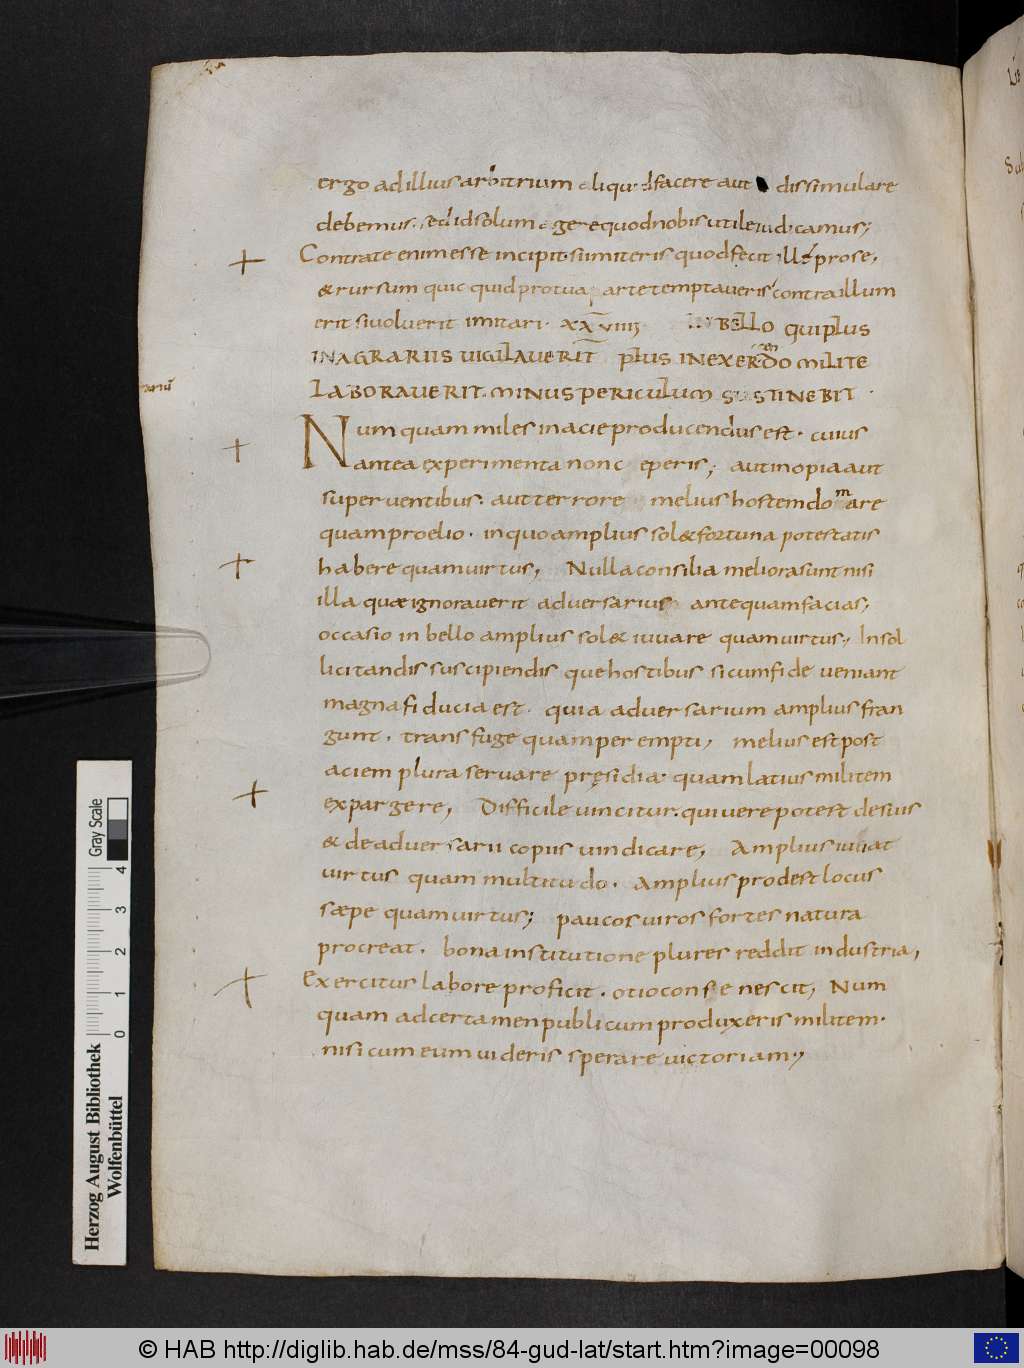 ergo ad illius arbitrium aliquid facere aut dissimulare
debemus. sed id solum agere quod nobis utile iudicamus;
Contra te enim esse incipit. si miteris quod fecit ille pro se,
& rursum quic quid pro tua parte temptaveris contra illum
erit si voluerit imitari. XXVIIII IN BELLO QUI PLUS
IN AGRARIIS VIGILAVERIT PLUS IN EXERCENDO MILITE
LABORAVERIT. MINUS PERICULUM SUSTINEBIT
Num quam miles in acie producendus est. cuius
antea experimenta non ceperis; aut inopia aut
superventibus. aut terrore melius hostem domare
quam proelio. in quo amplius sol& fortuna potestatis
habere quam virtus; Nulla consilia meliora sunt nisi
illa quæ ignoraverit adversarius antequam facias;
occasio in bello amplius sol& iuvare quam virtus; In sol
licitandis suscipiendis que hostibus si cum fide veniant
magna fiducia est. quia adversarium amplius fran
gunt. transfuge quam perempti; melius est post
aciem plura servare pręsidia. quam latius militem
expargere; Difficile vincitur. qui vere potest de suis
& de adversarii copiis vindicare; Amplius iuvat
virtus quam multitudo. Amplius prodest locus
sæpe quam virtus; paucos viros fortes natura
procreat. bona institutione plures reddit industria;
Exercitus labore proficit. otio consenescit; Num
quam ad certamen publicum produxeris militem.
nisi cum eum videris sperare victoriam;
Herzog August Bibliothek
Wolfenbüttel
0 1 2 3 4
Gray Scale
© HAB http://diglib.hab.de/mss/84-gud-lat/start.htm?image=00098